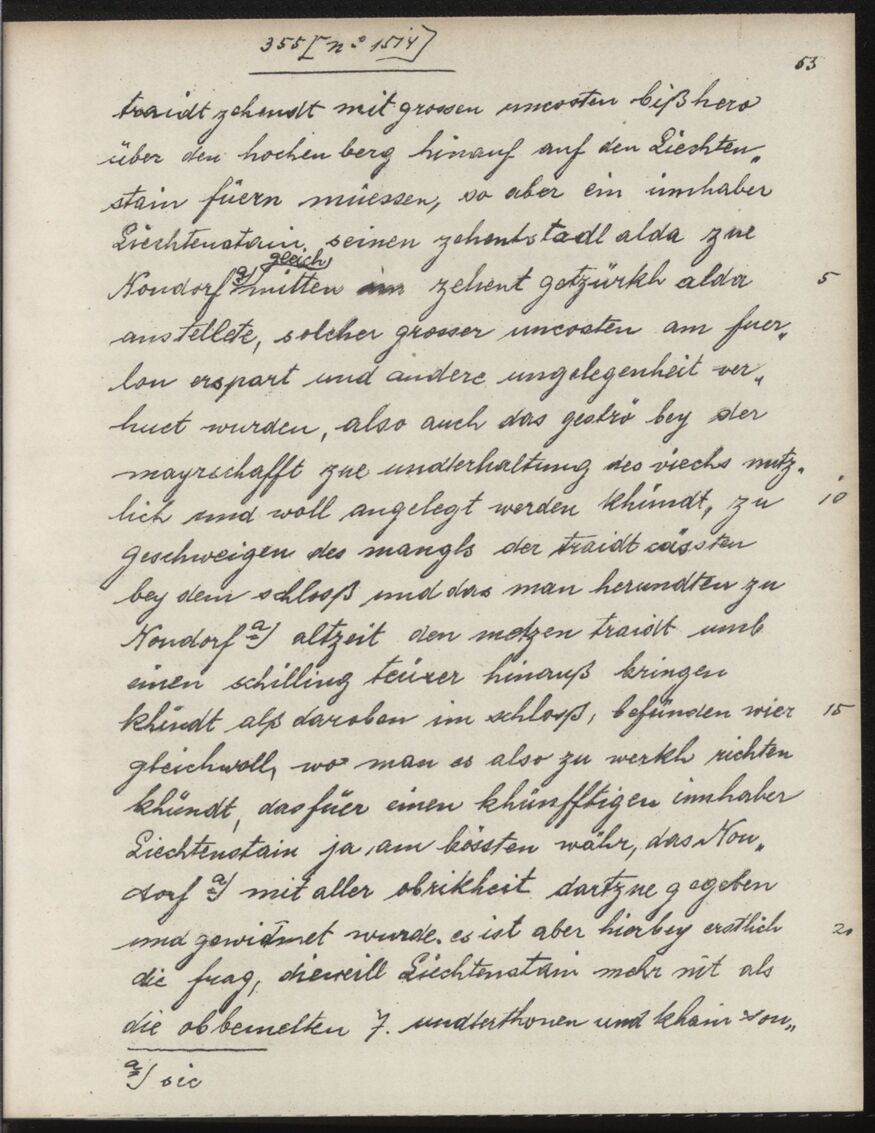 355 [nº 1514]
63
traidt zehendt mit grossen uncosten bißhero
über den hochen berg hinauf auf den Liechten„
stain füern müessen, so aber ein innhaber
Liechtenstain seinen zehentstadl alda zue
gleich
Nondorf a) mitten im zehent getzürkh alda 5
anstellete, solcher grosser uncosten am fuer„
lon erspart und andere ungelegenheit ver„
huet wurden, also auch das geströ bey der
mayrschafft zue underhaltung des viechs nutz„
lich und woll angelegt werden khündt, zu 10
geschweigen des mangls der traidt cässten
bey dem schloß und das man herundten zu
Nondorf a) altzeit den metzen traidt umb
einen schilling teürer hinauß bringen
khündt alß daroben im schloß, befünden wier 15
gleichwoll, wo man es also zu werkh richten
khündt, das füer einen khünfftigen innhaber
Liechtenstain ja am bössten währ, das Non„
dorf a) mit aller obrikheit dartzue gegeben
und gewidmet wurde. es ist aber hierbey erstlich 20
die frag, dieweill Liechtenstain mehr nit als
die obbemelten 7. underthonen und khain son„
a) sic